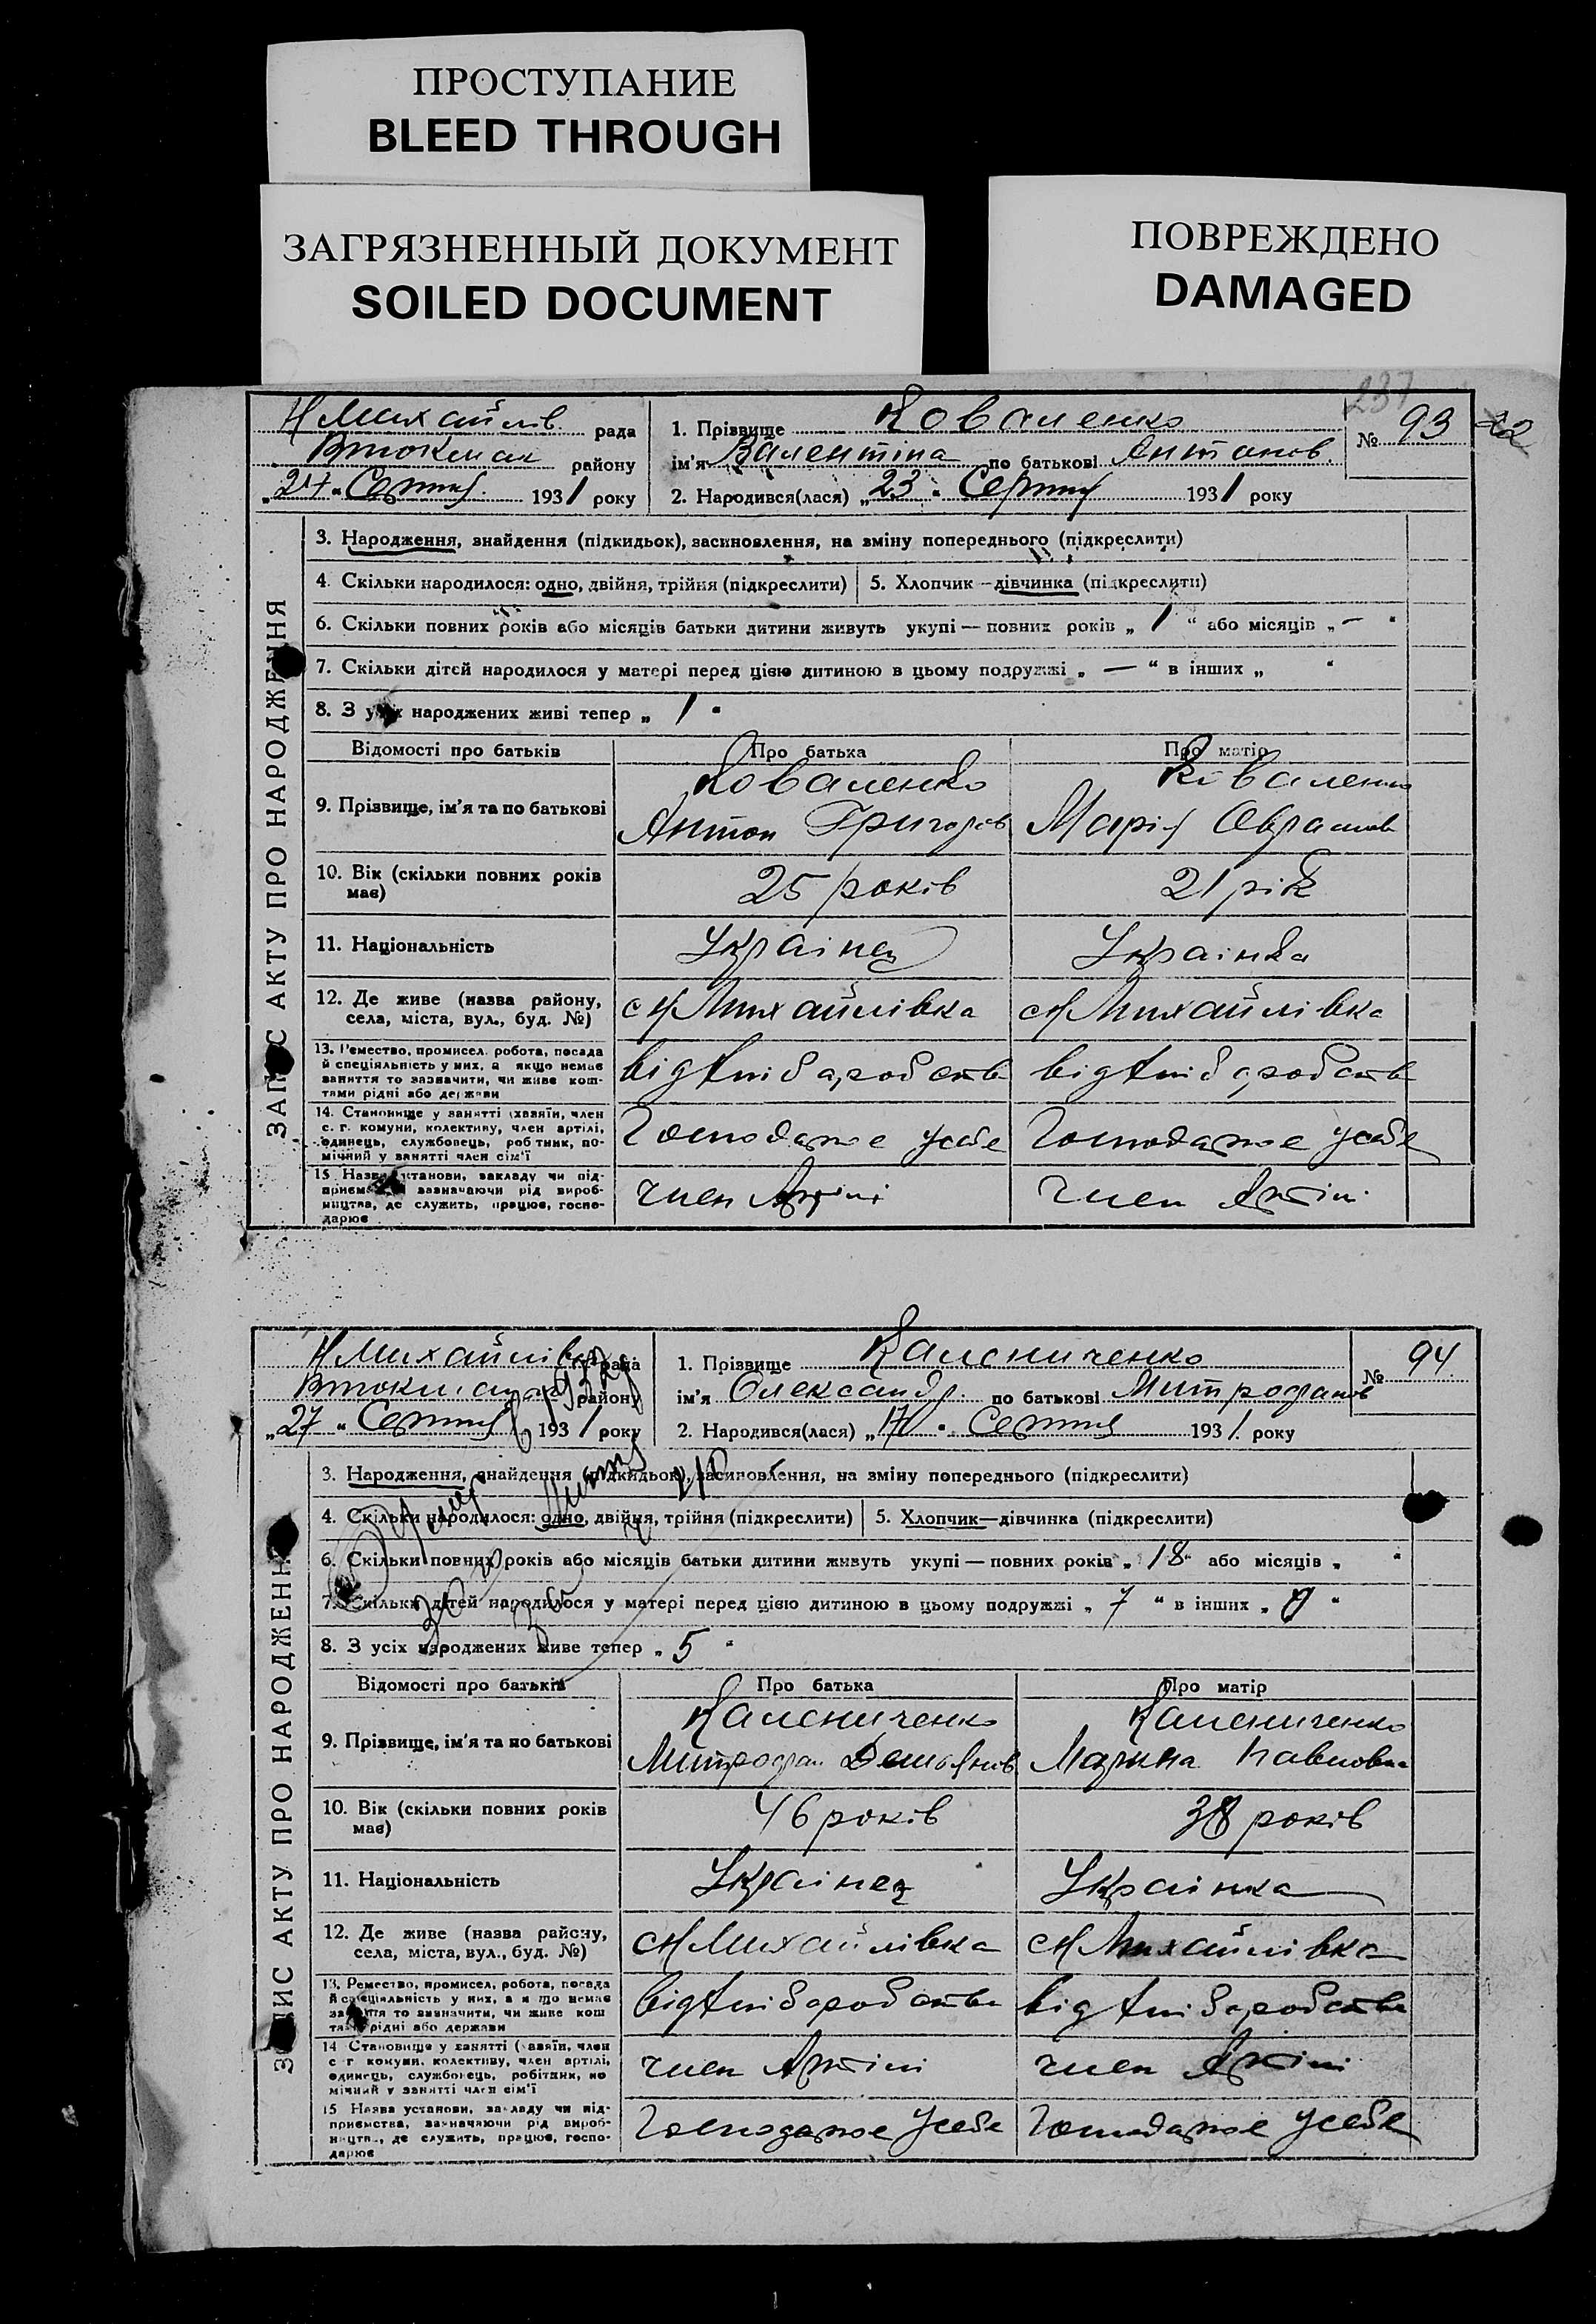 ПРОСТУПАНИЕ
BLEED THROUGH
ЗАГРЯЗНЕННЫЙ ДОКУМЕНТ
SOILED DOCUMENT
ПОВРЕЖДЕНО
DAMAGED
237
Н Михайлів. рада
Втокмак району
„24“ Серпня 1931 року
1. Прізвище Коваленко
ім'я Валентіна по батькові Антонов.
2. Народився(лася) „23“ Серпня 1931 року
№ 93
ЗАПИС АКТУ ПРО НАРОДЖЕННЯ
3. Народження, знайдення (підкидьок), засиновлення, на зміну попереднього (підкреслити)
4. Скільки народилося: одно, двійня, трійня (підкреслити) 5. Хлопчик—дівчинка (підкреслити)
6. Скільки повних років або місяців батьки дитини живуть укупі — повних років „1“ або місяців „—“
7. Скільки дітей народилося у матері перед цією дитиною в цьому подружжі „—“ в інших „ “
8. З усіх народжених живі тепер „1“
Відомості про батьків Про батька Про матір
9. Прізвище, ім'я та по батькові
Коваленко Антон Григоров
Коваленко Марія Аврамов
10. Вік (скільки повних років має) 25 років 21 рік
11. Національність Українец Українка
12. Де живе (назва району, села, міста, вул., буд. №) с Н Михайлівка с Н Михайлівка
13. Ремество, промисел, робота, посада
й спеціяльність у них, а якщо немає
заняття то зазначити, чи живе кош-
тами рідні або держави
хліборобств хліборобств
14. Становище у занятті (хазяїн, член
с. г. комуни, колективу, член артілі,
одинець, службовець, робітник, по-
мічний у занятті член сім'ї
Господарює у себе Господарює у себе
15. Назва установи, закладу чи під-
приємства, зазначаючи рід вироб-
ництва, де служить, працює, госпо-
дарює
член Артілі член Артілі
Н Михайлівка рада
Втокмак району
„27“ Серпня 1931 року
1. Прізвище Калениченко
ім'я Олександр. по батькові Митрофанов
2. Народився(лася) „17“ Серпня 1931 року
№ 94
ЗАПИС АКТУ ПРО НАРОДЖЕННЯ
3. Народження, знайдення (підкидьок), засиновлення, на зміну попереднього (підкреслити)
4. Скільки народилося: одно, двійня, трійня (підкреслити) 5. Хлопчик—дівчинка (підкреслити)
6. Скільки повних років або місяців батьки дитини живуть укупі — повних років „18“ або місяців „ “
7. Скільки дітей народилося у матері перед цією дитиною в цьому подружжі „7“ в інших „0“
8. З усіх народжених живе тепер „5“
Відомості про батьків Про батька Про матір
9. Прізвище, ім'я та по батькові
Калениченко Митрофан Демянів
Калениченко Марина Павловна
10. Вік (скільки повних років має) 46 років 38 років
11. Національність Українец Українка
12. Де живе (назва району, села, міста, вул., буд. №) с Н Михайлівка с Н Михайлівка
13. Ремество, промисел, робота, посада
й спеціяльність у них, а якщо немає
заняття то зазначити, чи живе кош
тами рідні або держави
хліборобство хліборобства
14 Становище у занятті (хазяїн, член
с г комуни, колективу, член артілі,
одинець, службовець, робітник, по
мічний у занятті член сім'ї
член Артілі член Артілі
15 Назва установи, закладу чи під-
приємства, зазначаючи рід вироб-
ництва, де служить, працює, госпо-
дарює
Господарює у себе Господарює у себе